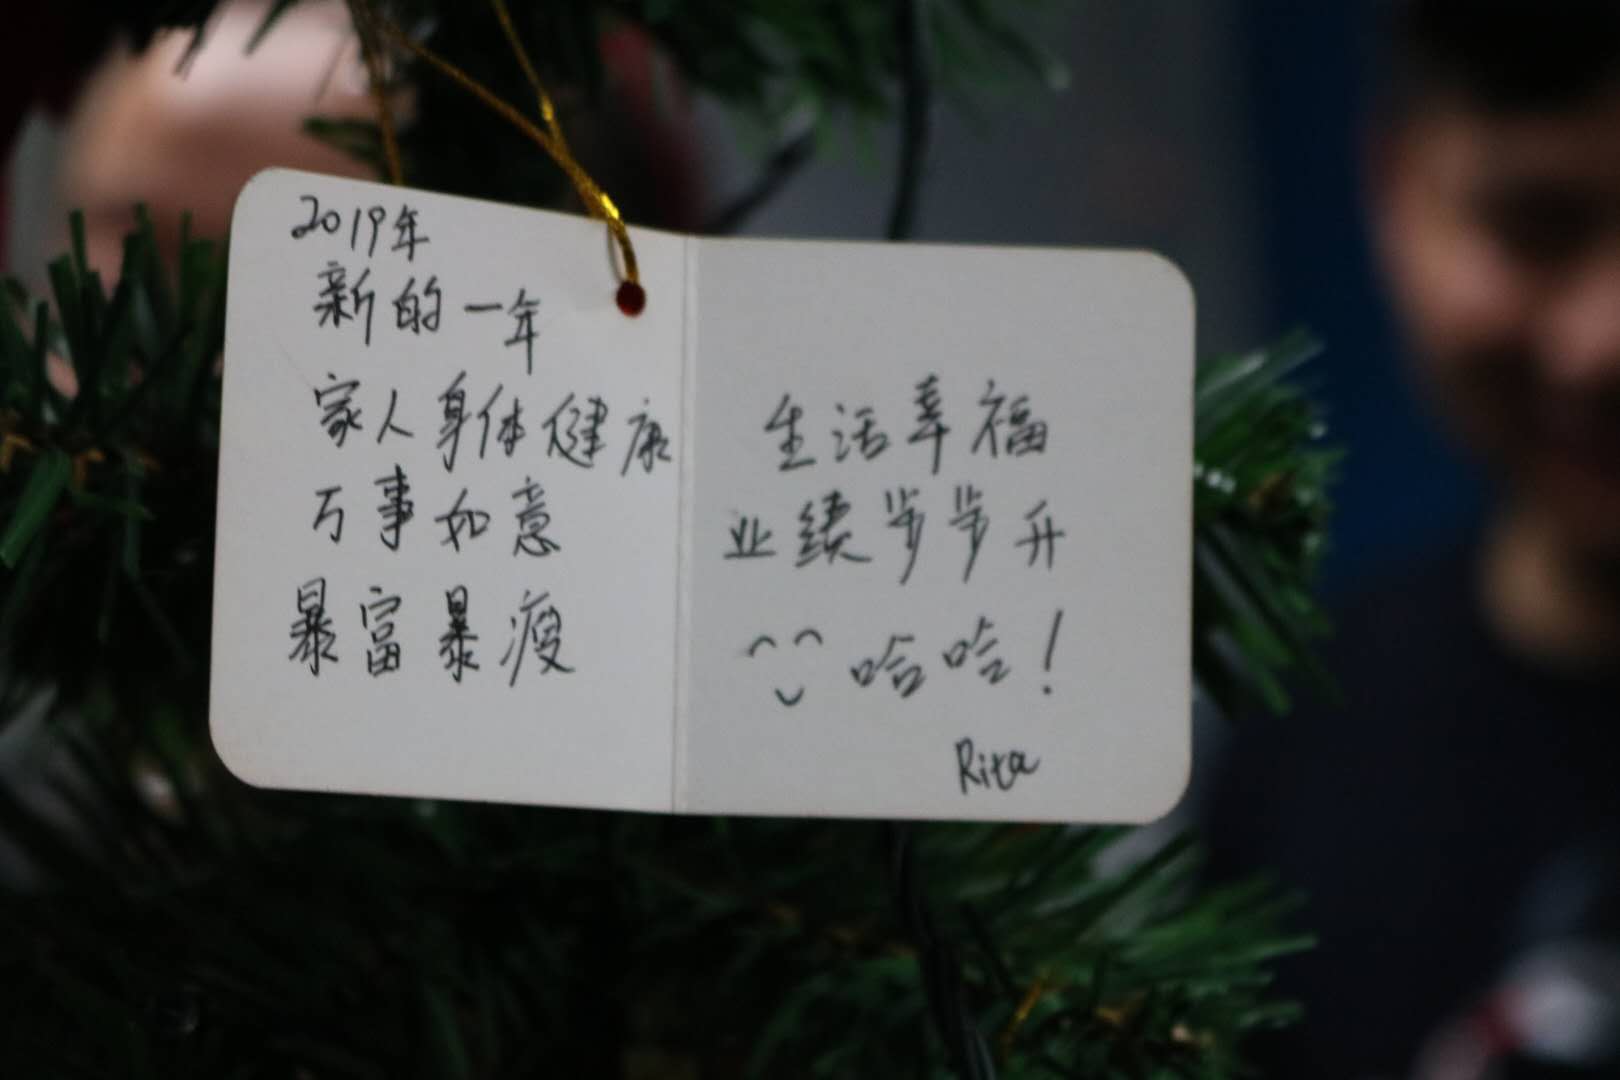 2019年
新的一年
家人身体健康
万事如意
暴富暴瘦
生活幸福
业绩步步升
哈哈！
Rita